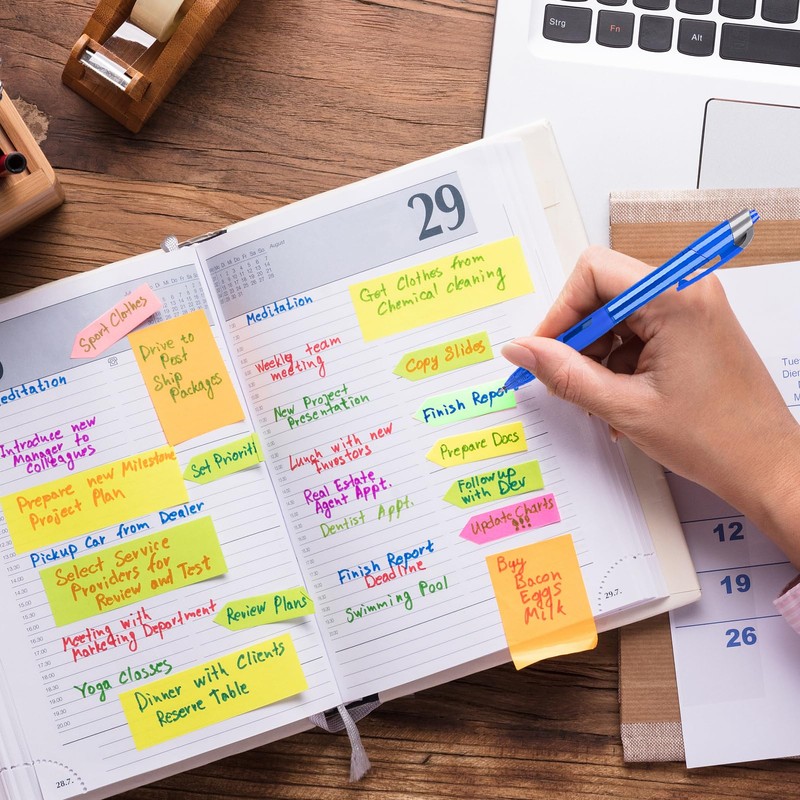 Strg
Fn
Alt
Sport Clothes
Drive to
Post
Ship
Packages
Introduce new
Manager to
Colleagues
Set Prioriti
Prepare new Milestone
Project Plan
Pickup Car from Dealer
Select Service
Providers for
Review and Test
Meeting with
Marketing Department
Review Plans
Yoga Classes
Dinner with Clients
Reserve Table
28.7.
29
August
Meditation
Get Clothes from
Chemical cleaning
Weekly team
meeting
Copy Slides
New Project
Presentation
Finish Report
Lunch with new
Investors
Prepare Docs
Real Estate
Agent Appt.
Follow up
with Dev
Dentist Appt.
Update Charts
!!!
Finish Report
Deadline
Swimming Pool
Buy
Bacon
Eggs
Milk
29.7.
12
19
26